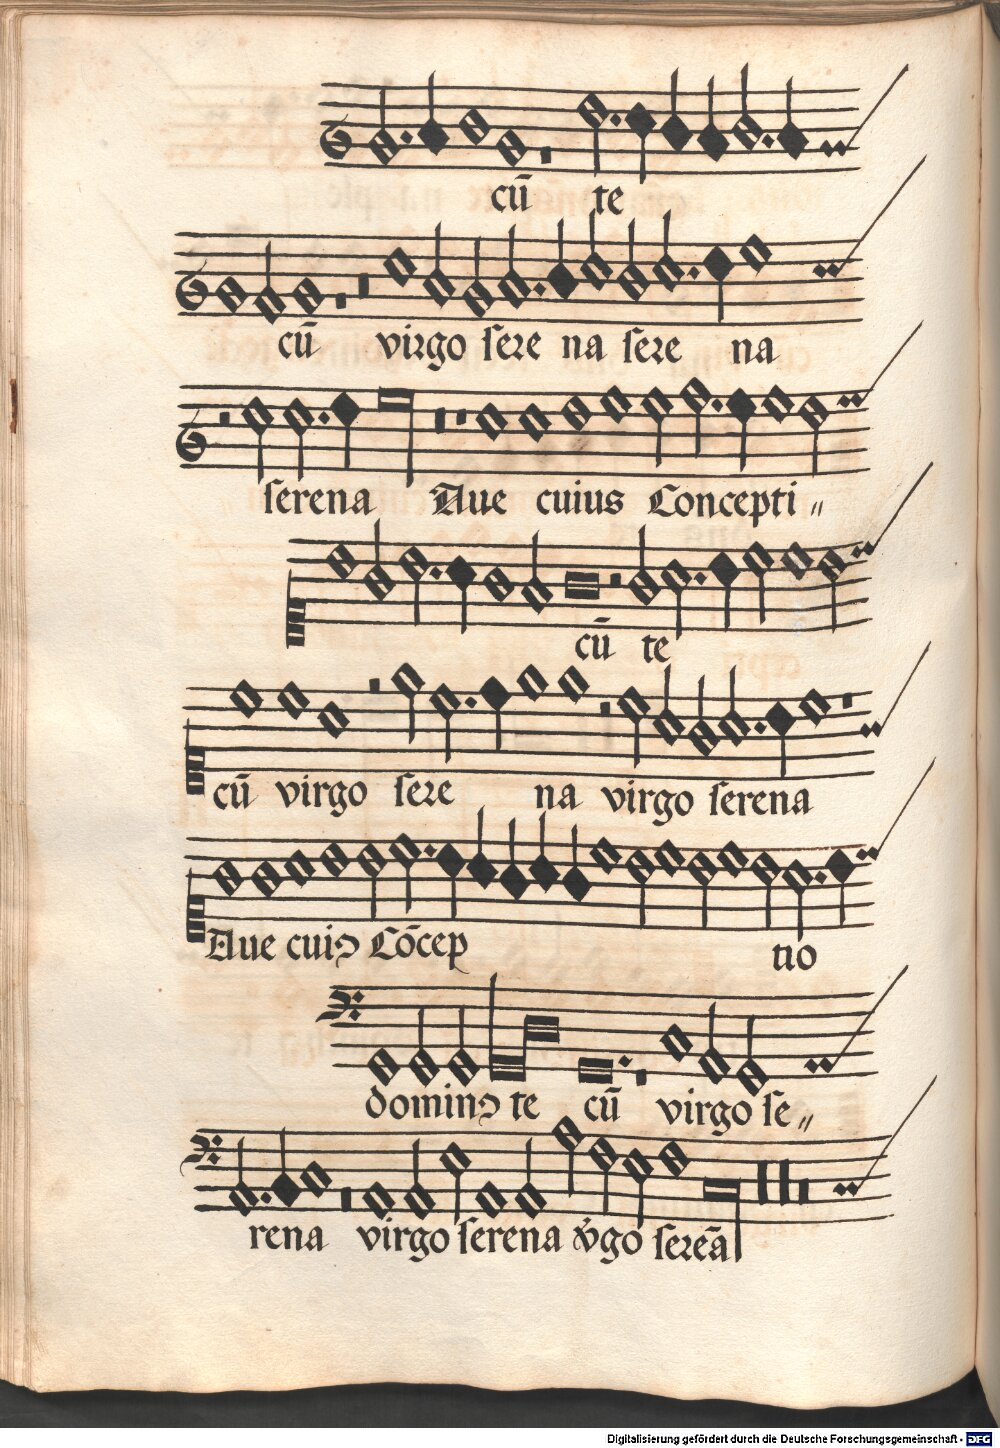 cū te
cū virgo sere na sere na
serena Aue cuius Concepti〃
cū te
cū virgo sere na virgo serena
Aue cuiꝰ Cōcep tio
dominꝰ te cū virgo se〃
rena virgo serena v̓go sereā
Digitalisierung gefördert durch die Deutsche Forschungsgemeinschaft - DFG